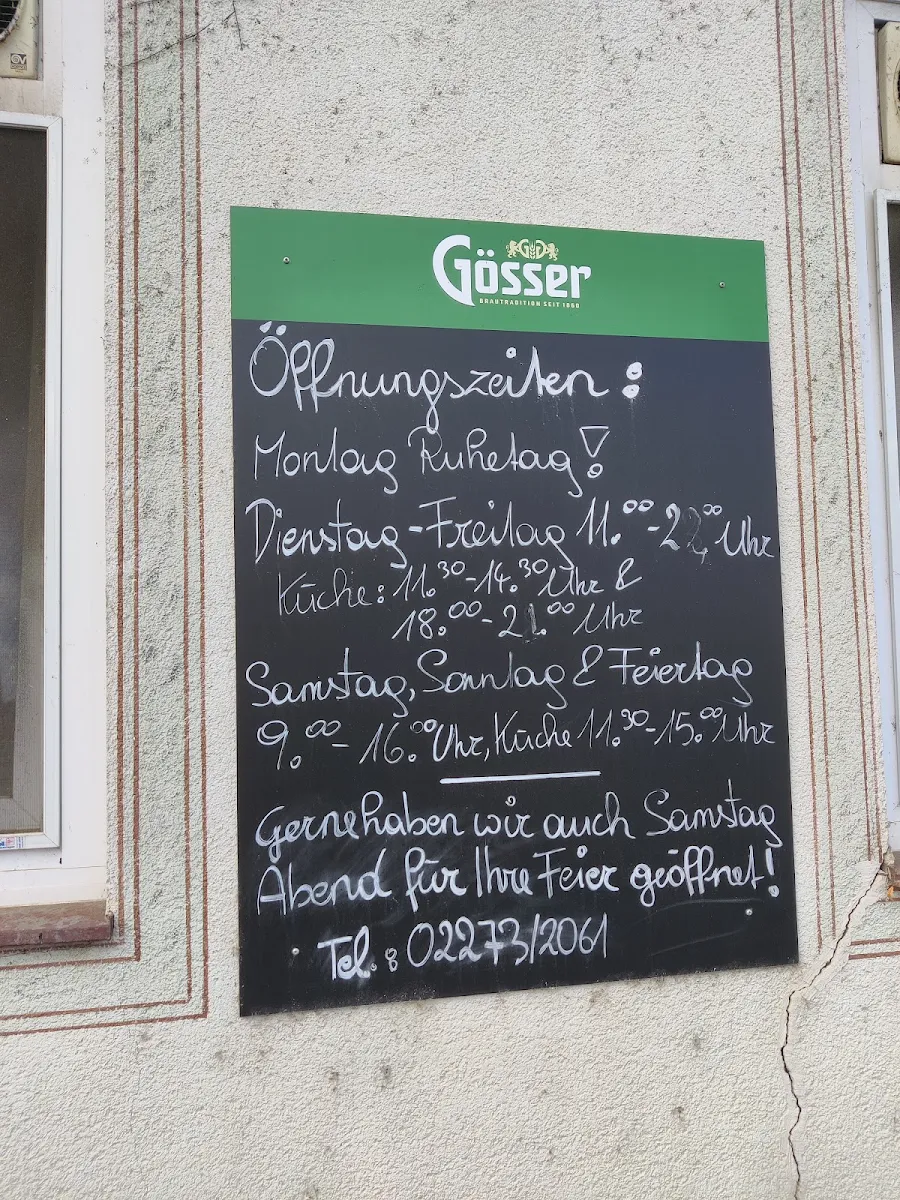 Gösser
BRAUTRADITION SEIT 1860
Öffnungszeiten :
Montag Ruhetag!
Dienstag-Freitag 11.00-22.00 Uhr
Küche: 11.30-14.30 Uhr &
18.00-21.00 Uhr
Samstag, Sonntag & Feiertag
9.00- 16.00 Uhr, Küche 11.30-15.00 Uhr
Gerne haben wir auch Samstag
Abend für Ihre Feier geöffnet!
Tel.: 02273/2061